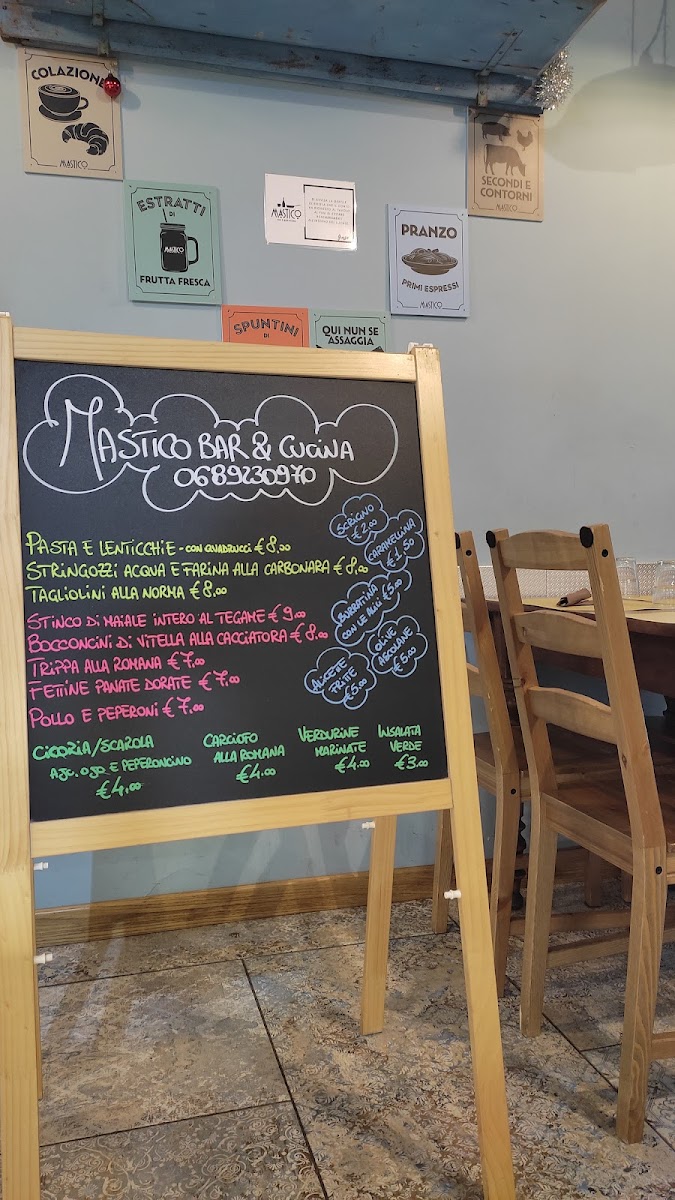 COLAZIONE
MASTICO
ESTRATTI
DI
MASTICO
FRUTTA FRESCA
MASTICO
SECONDI E
CONTORNI
MASTICO
PRANZO
PRIMI ESPRESSI
MASTICO
SPUNTINI
DI
QUI NUN SE
ASSAGGIA
MASTICO BAR & CUCINA
0689230970
PASTA E LENTICCHIE - CON QUADRUCCI €8,00
STRINGOZZI ACQUA E FARINA ALLA CARBONARA €8,00
TAGLIOLINI ALLA NORMA €8,00
STINCO DI MAIALE INTERO AL TEGAME €9,00
BOCCONCINI DI VITELLA ALLA CACCIATORA €8,00
TRIPPA ALLA ROMANA €7,00
FETTINE PANATE DORATE €7,00
POLLO E PEPERONI €7,00
SCRIGNO
€2,00
CARAMELLONA
€1,50
BURRATINA
CON LE ALICI €5,00
OLIVE
ASCOLANE
€5,00
ALICETTE
FRITTE
€5,00
CICORIA/SCAROLA
AJO, OJO E PEPERONCINO
€4,00
CARCIOFO
ALLA ROMANA
€4,00
VERDURINE
MARINATE
€4,00
INSALATA
VERDE
€3,00